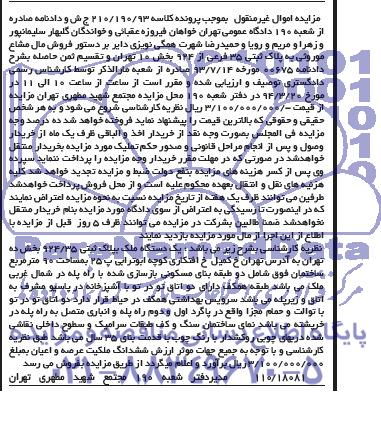 مزایده اموال غیرمنقول بموجب پرونده کلاسه ۲۱۰/۱۹۰/۹۳ ج ش و دادنامه صادره
از شعبه ۱۹۰ دادگاه عمومی تهران خواهان فیروزه عقبائی و خواندگان گلبهار سلیمانپور
و زهرا و مریم و رویا و حمیدرضا شهرت همگی نویزی دایر بر دستور فروش مال مشاع
موروثی به پلاک ثبتی ۳۵ فرعی از ۹۲۴ بخش ۱۰ تهران و تقسیم ثمن حاصله بشرح
دادنامه ۰۰۶۷۵ مورخه ۹۳/۷/۱۴ صادره از شعبه مارالذکر توسط کارشناس رسمی
دادگستری توصیف و ارزیابی شده و مقرر است از ساعت از ساعت ۱۰ الی ۱۱ در
مورخ ۹۴/۳/۲۰ در دفتر شعبه ۱۹۰ محل مزایده مجتمع شهید مطهری تهران مزایده
از قیمت ۳/۱۰۰/۰۰۰/۰۰۰ ریال نظریه کارشناسی شروع می شود و به هر شخص
حقیقی و حقوقی که بالاترین قیمت را پیشنهاد نماید فروخته خواهد شد ده درصد وجه
مزایده فی المجلس بصورت وجه نقد از خریدار اخذ و الباقی ظرف یک ماه از خریدار
وصول و پس از انجام مراحل قانونی و صدور حکم تملیک مورد مزایده بخریدار منتقل
خواهدشد در صورتی که در مهلت مقرر خریدار وجه مزایده را پرداخت ننماید سپرده
وی پس از کسر هزینه های مزایده بنفع دولت ضبط و مزایده تجدید خواهد شد کلیه
هزینه های نقل و انتقال بعهده محکوم علیه است و از محل فروش پرداخت خواهدشد
طرفین می توانند ظرف یک هفته از تاریخ مزایده نسبت به نحوه مزایده اعتراض نمایند
که در اینصورت تا رسیدگی به اعتراض از سوی دادگاه مورد مزایده بنام خریدار منتقل
نخواهدشد ضمنا طالبین بشرکت در مزایده می توانند ظرف ۵ روز قبل از مزایده با
اطلاع از این اجرا از مال مورد مزایده بازدید نمایند
نظریه کارشناسی بشرح زیر می باشد: یک دستگاه ملک پلاک ثبتی ۹۲۴/۳۵ بخش ده
تهران به آدرس تهران خ کمیل خ افتکاری کوچه ابوترابی پ ۲۵ بمساحت ۹۰ مترمربع
ساختمان فوق شامل دو طبقه بنای مسکونی بازسازی شده با راه پله در شمال غربی
ملک می باشد طبقه همکف دارای دو اتاق تو در تو با آشپزخانه در پاسیو مشرف به
اتاق و زیرپله می باشد سرویس بهداشتی همکف در حیاط قرار دارد دو اتاق تو در تو
با توالت و حمام مجزا واقع در پاگرد اول و دوم راه پله و انباری متصل به راه پله در
خرپشته می باشد نمای ساختمان سنگ و کف طبقات سرامیک و سطوح داخلی نقاشی
شده دربهای چوبی روکشدار با رنگ چوب با قدمت بنای ۳۵ سال می باشد طبق نظریه
کارشناسی و با توجه به جمیع جهات موثر ارزش ششدانگ ملکیت عرصه و اعیان بمبلغ
۳/۱۰۰/۰۰۰/۰۰۰ ریال برآورد و اعلام میگردد از طریق مزایده بفروش می رسد
۱۱۰/۱۸۰۸۱ مدیردفتر شعبه ۱۹۰ مجتمع شهید مطهری تهران